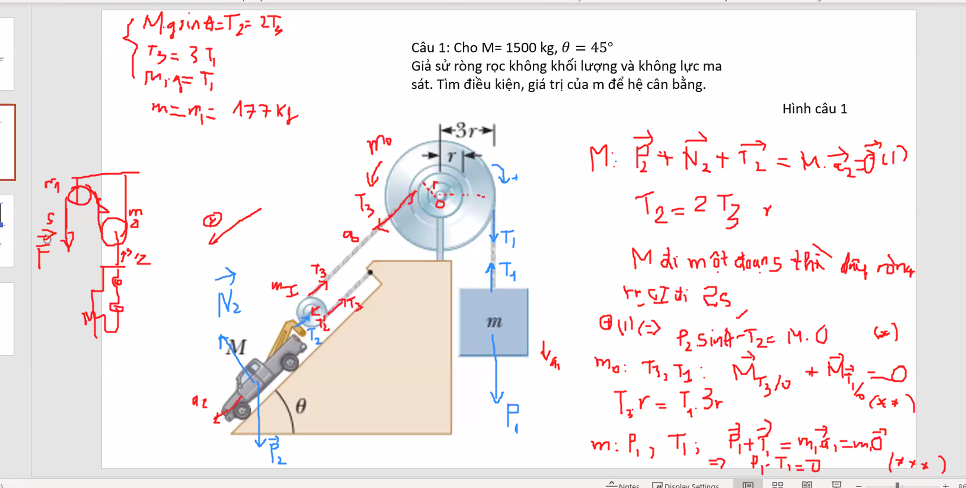 M.g sinθ = T2 = 2T3
T3 = 3 T1
m1 g = T1
m = m1 = 177 kg
Câu 1: Cho M= 1500 kg, θ = 45°
Giả sử ròng rọc không khối lượng và không lực ma
sát. Tìm điều kiện, giá trị của m để hệ cân bằng.
Hình câu 1
3r
r
m0
T3
T1
T1
m
P1
T3
I
T3
T2
N2
M
a2
P2
θ
F
M
M: P2 + N2 + T2 = M.a2 = 0 (1)
T2 = 2 T3
M đi một đoạn s thì dây ròng
rọc I đi 2s
(1) (=)
P2 sinθ - T2 = M. 0 (*)
m0: T3, T1: M T3/0 + M T1/0 = 0
T3 r = T1. 3r (**)
m: P1, T1; P1 + T1 = m1 a1 = m1 0
=> P1 - T1 = 0 (***)
Notes
Display Settings